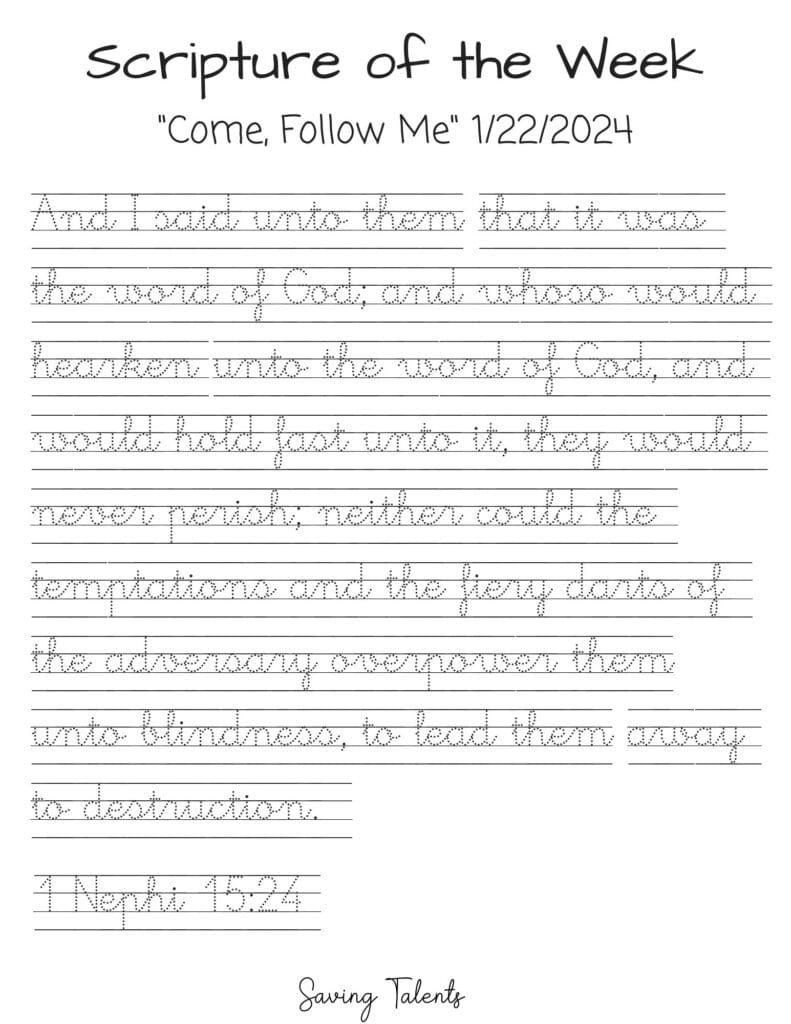 Scripture of the Week
"Come, Follow Me" 1/22/2024
And I said unto them that it was
the word of God; and whoso would
hearken unto the word of God, and
would hold fast unto it, they would
never perish; neither could the
temptations and the fiery darts of
the adversary overpower them
unto blindness, to lead them away
to destruction.
1 Nephi 15:24
Saving Talents